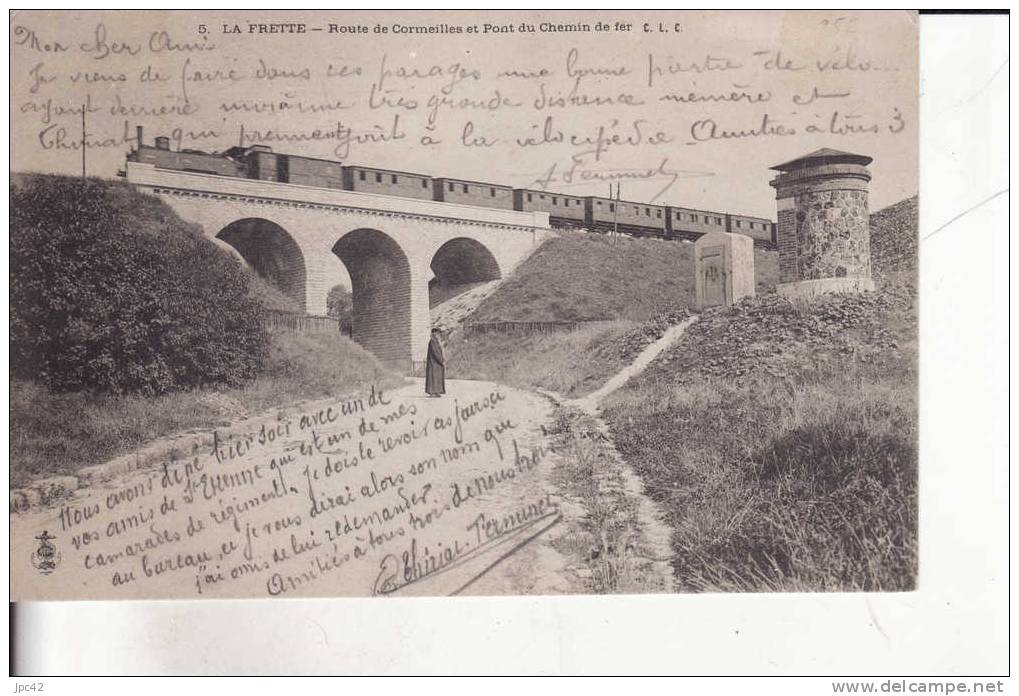 5. LA FRETTE — Route de Cormeilles et Pont du Chemin de fer C. L. C.
Mon cher Ami
Je viens de faire dans ces parages une bonne partie de vélo...
ayant derrière moi une très grande distance mémère et
Thiriat qui prennent goût à la vélocipédie Amitiés à tous 3
Nous avons dîné hier soir avec un de
vos amis de St Etienne qui est un de mes
camarades de régiment. Je dois le revoir ces jours ci
au bureau, et je vous dirai alors son nom que
j'ai omis de lui redemander.
Amitiés à tous trois de nous trois
jpc42
www.delcampe.net